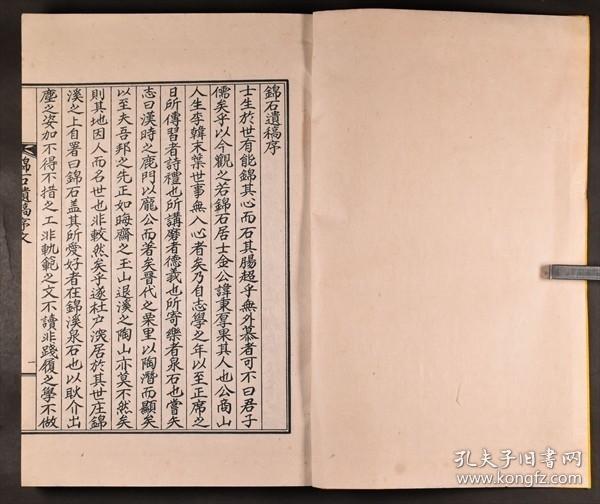 錦石遺稿序
士生於世有能錦其心而石其腸超乎無外慕者可不曰君子
儒矣乎以今觀之若錦石居士金公諱東厚果其人也公商山
人生李韓末葉世事無入心者矣乃自志學之年以至正席之
日所傳習者詩禮也所講磨者德義也所寄樂者泉石也嘗矢
志曰漢時之鹿門以龐公而著矣晉代之栗里以陶潛而顯矣
以至夫吾邦之先正如晦齋之玉山退溪之陶山亦莫不然矣
則其地因人而名世也非較然矣乎遂杜户深居於其世庄錦
溪之上自署曰錦石盖其所愛好者在錦溪泉石也以耿介出
塵之姿加不得不措之工非軌範之文不讀非踐履之學不做
錦石遺稿序文
一
孔夫子旧書网
www.kongfz.com